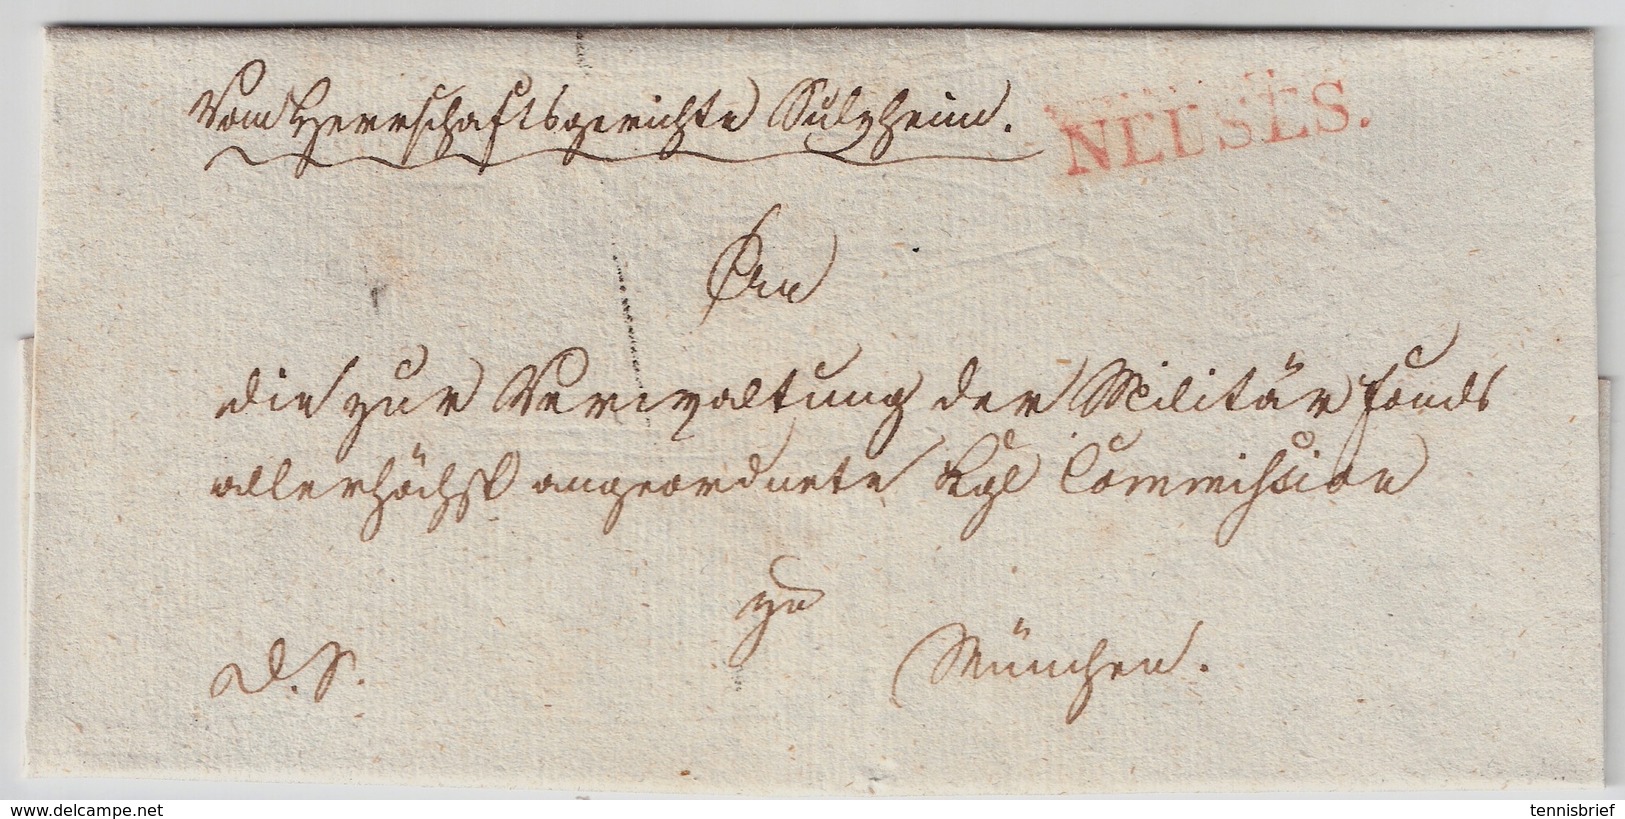 Vom Herrschaftsgerichte Sulzheim.
NEUSES.
An
die zur Verwaltung der Militär fonds
allerhöchst angeordnete Kgl Commission
zu
München.
D. S.
www.delcampe.net
tennisbrief